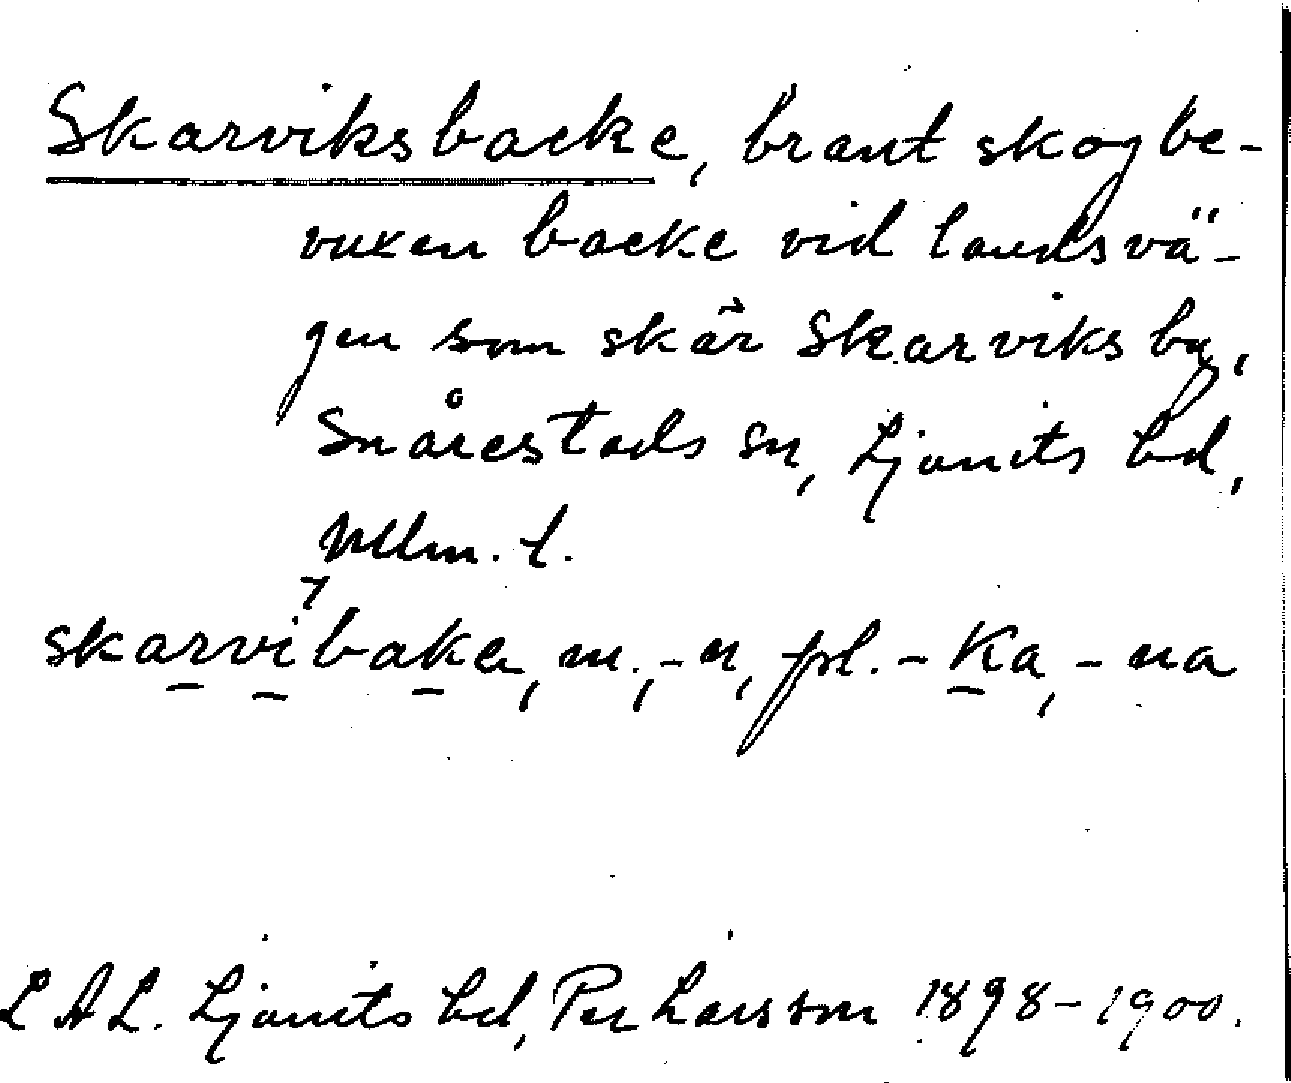 Skarviksbacke, brant skogbe-
vuxen backe vid landsvä-
gen som skär Skarviks by,
Snårestads sn, Ljunits hd,
Mlm. l.
skarvibaka, m., -n, pl. -ka, -na
L A L. Ljunits hd, Per Larsson 1898-1900.